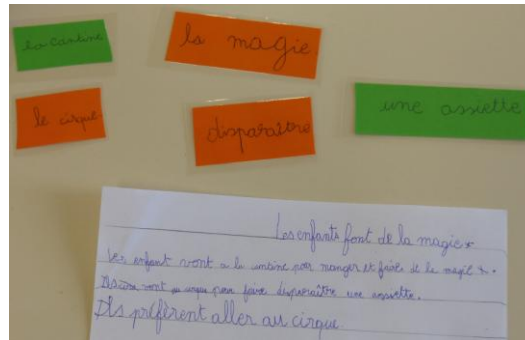 la cantine
la magie
le cirque
disparaître
une assiette
Les enfants font de la magie
Les enfant vont a la cantine pour manger et faire de la magie
vont au cirque pour faire disparaître une assiette.
Ils préfèrent aller au cirque